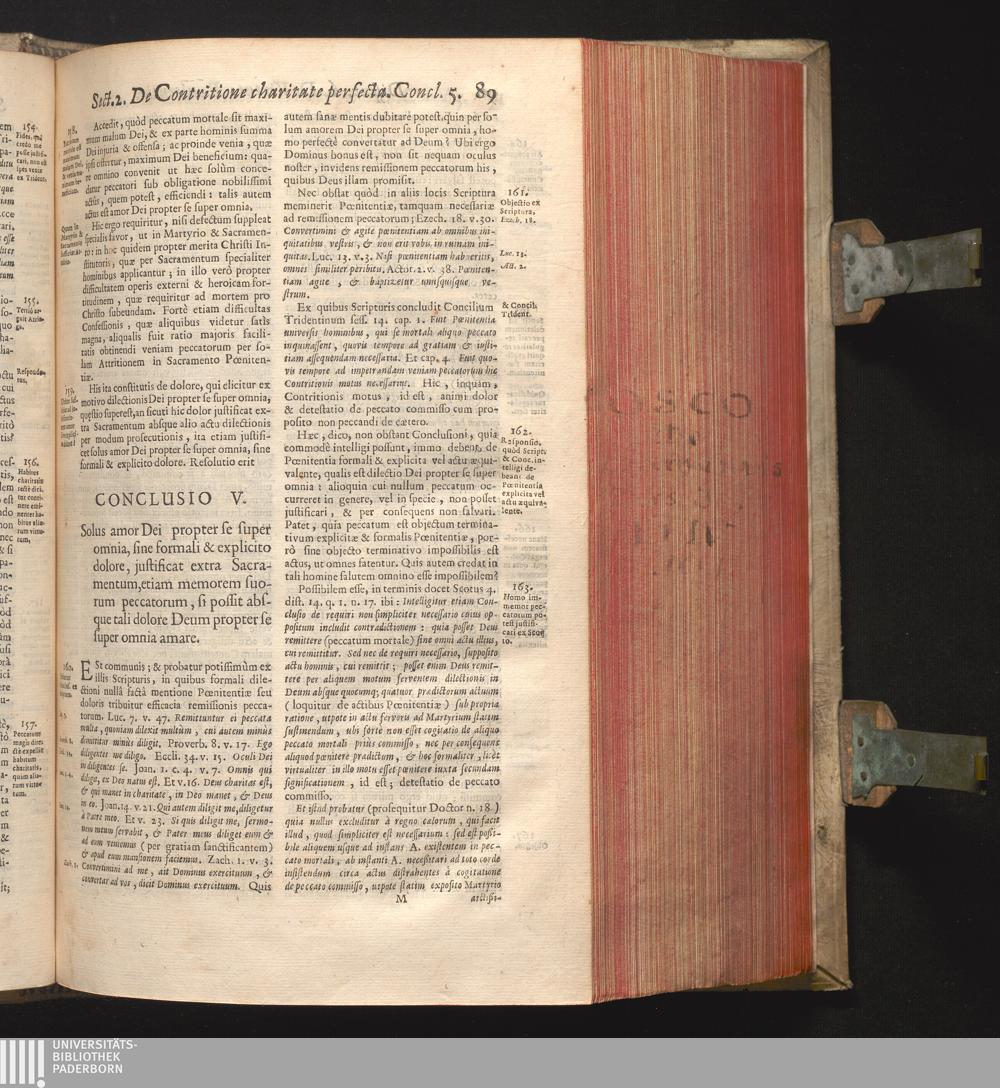 Sect. 2. De Contritione charitate perfecta. Concl. 5. 89
158.
Accedit, quòd peccatum mortale sit maxi-
mum malum Dei, & ex parte hominis summa
Dei injuria & offensa; ac proinde venia, quæ
ipsi offertur, maximum Dei beneficium: qua-
re omnino convenit ut hæc solùm conce-
datur peccatori sub obligatione nobilissimi
actûs, quem potest, efficiendi: talis autem
actus est amor Dei propter se super omnia.
Hic ergo requiritur, nisi defectum suppleat
specialis favor, ut in Martyrio & Sacramen-
to: in hoc quidem propter merita Christi In-
stitutoris, quæ per Sacramentum specialiter
hominibus applicantur; in illo verò propter
difficultatem operis externi & heroicam for-
titudinem, quæ requiritur ad mortem pro
Christo subeundam. Fortè etiam difficultas
Confessionis, quæ aliquibus videtur satis
magna, aliqualis fuit ratio majoris facili-
tatis obtinendi veniam peccatorum per so-
lam Attritionem in Sacramento Pœniten-
tiæ.
159.
His ita constitutis de dolore, qui elicitur ex
motivo dilectionis Dei propter se super omnia,
quæstio superest, an sicuti hic dolor justificat ex-
tra Sacramentum absque alio actu dilectionis
per modum prosecutionis, ita etiam justifi-
cet solus amor Dei propter se super omnia, sine
formali & explicito dolore. Resolutio erit
CONCLUSIO V.
Solus amor Dei propter se super
omnia, sine formali & explicito
dolore, justificat extra Sacra-
mentum, etiam memorem suo-
rum peccatorum, si possit abs-
que tali dolore Deum propter se
super omnia amare.
160.
ESt communis; & probatur potissimùm ex
illis Scripturis, in quibus formali dile-
ctioni nullâ factâ mentione Pœnitentiæ seu
doloris tribuitur efficacia remissionis pecca-
torum. Luc. 7. v. 47. Remittuntur ei peccata
multa, quoniam dilexit multùm, cui autem minùs
demittitur minùs diligit. Proverb. 8. v. 17. Ego
diligentes me diligo. Eccli. 34. v. 15. Oculi Dei
in diligentes se. Joan. 1. c. 4. v. 7. Omnis qui
diligit, ex Deo natus est. Et v. 16. Deus charitas est,
& qui manet in charitate, in Deo manet, & Deus
in eo. Joan. 14. v. 21. Qui autem diligit me, diligetur
à Patre meo. Et v. 23. Si quis diligit me, sermo-
nem meum servabit, & Pater meus diliget eum &
ad eum veniemus (per gratiam sanctificantem)
& apud eum mansionem faciemus. Zach. 1. v. 3.
Convertimini ad me, ait Dominus exercituum, &
convertar ad vos, dicit Dominus exercituum. Quis
autem sanæ mentis dubitare potest, quin per so-
lum amorem Dei propter se super omnia, ho-
mo perfectè convertatur ad Deum? Ubi ergo
Dominus bonus est, non sit nequam oculus
noster, invidens remissionem peccatorum his,
quibus Deus illam promisit.
161.
Objectio ex
Scriptura,
Ezech. 18.
Nec obstat quòd in aliis locis Scriptura
meminerit Pœnitentiæ, tamquam necessariæ
ad remissionem peccatorum; Ezech. 18. v. 30.
Convertimini & agite pœnitentiam ab omnibus ini-
quitatibus vestris, & non erit vobis in ruinam ini-
quitas. Luc. 13. v. 3. Nisi pœnitentiam habueritis,
omnes similiter peribitis. Actor. 2. v. 38. Pœniten-
tiam agite, & baptizetur unusquisque ve-
strum.
Luc. 13.
Act. 2.
& Concil.
Trident.
Ex quibus Scripturis concludit Concilium
Tridentinum sess. 14. cap. 1. Fuit Pœnitentia
universis hominibus, qui se mortali aliquo peccato
inquinassent, quovis tempore ad gratiam & justi-
tiam assequendam necessaria. Et cap. 4. Fuit quo-
vis tempore ad impetrandam veniam peccatorum hic
Contritionis motus necessarius. Hic, (inquam,
Contritionis motus, id est, animi dolor
& detestatio de peccato commisso cum pro-
posito non peccandi de cætero.
162.
Responsio,
quòd Script.
& Conc. in-
telligi de-
beant de
Pœnitentia
explicita vel
actu æquiva-
lente.
Hæc, dico, non obstant Conclusioni, quia
commodè intelligi possunt, immo debent, de
Pœnitentia formali & explicita vel actu æqui-
valente, qualis est dilectio Dei propter se super
omnia: alioquin cui nullum peccatum oc-
curreret in genere, vel in specie, non posset
justificari, & per consequens non salvari.
Patet, quia peccatum est objectum termina-
tivum explicitæ & formalis Pœnitentiæ, por-
rò sine objecto terminativo impossibilis est
actus, ut omnes fatentur. Quis autem credat in
tali homine salutem omnino esse impossibilem?
163.
Homo im-
memor pec-
catorum po-
test justifi-
cari ex Sco-
to.
Possibilem esse, in terminis docet Scotus 4.
dist. 14. q. 1. n. 17. ibi: Intelligitur etiam Con-
clusio de requiri non simpliciter necessario cujus op-
positum includit contradictionem: quia posset Deus
remittere (peccatum mortale) sine omni actu illius,
cui remittitur. Sed nec de requiri necessario, supposito
actu hominis, cui remittit; posset enim Deus remit-
tere per aliquem motum ferventem dilectionis in
Deum absque quocumq; quatuor prædictorum actuum
(loquitur de actibus Pœnitentiæ) sub propria
ratione, utpote in actu fervoris ad Martyrium statim
sustinendum, ubi fortè non esset cogitatio de aliquo
peccato mortali priùs commisso, nec per consequens
aliquod pœnitere prædictum, & hoc formaliter, licèt
virtualiter in illo motu esset pœnitere juxta secundam
significationem, id est; detestatio de peccato
commisso.
Et istud probatur (prosequitur Doctor n. 18)
quia nullus excluditur à regno cælorum, qui facit
illud, quod simpliciter est necessarium: sed est possi-
bile aliquem usque ad instans A. existentem in pec-
cato mortali, ab instanti A. necessitari ad toto corde
insistendum circa actus distrahentes à cogitatione
de peccato commisso, utpote statim exposito Martyrio
M
accipi-
154.
155.
156.
Habitus
charitatis
157.
Peccatum
UNIVERSITÄTS-
BIBLIOTHEK
PADERBORN